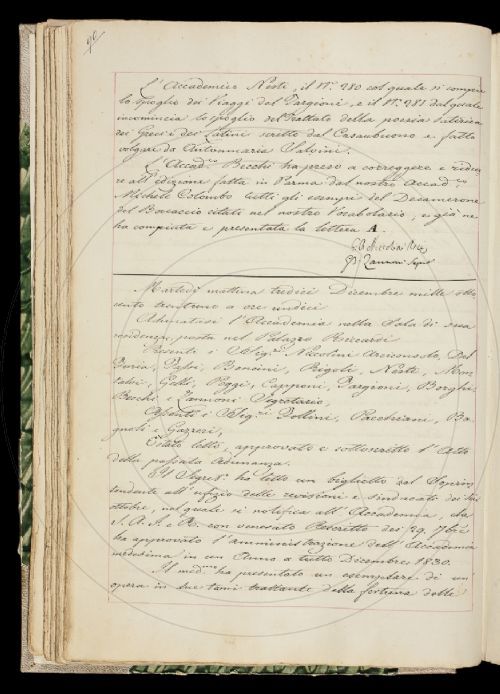 96
L'Accademico Nesti, il N.° 280 col quale si compie
lo spoglio dei Viaggi del Targioni, e il N.° 281 dal quale
incomincia lo spoglio del Trattato della poesia satirica
dei Greci e dei Latini scritto dal Casaubuono e fatto
volgare da Antonmaria Salvini.
L'Accad.co Becchi ha preso a correggere e ridur
re all'edizione fatta in Parma dal nostro Accad.co
Michele Colombo tutti gli esempi del Decamerone
del Bocaccio citati nel nostro Vocabolario, e già ne
ha compiuta e presentata la lettera A.
G. B. Niccolini
G. B. Zannoni Segret.
Martedì mattina tredici Dicembre mille otto
cento trentuno a ore undici
Adunatasi l'Accademia nella Sala di sua
residenza posta nel Palazzo Riccardi
Presenti i Sig.ri Niccolini Arciconsolo, Del
Furia, Babi, Bencini, Rigoli, Nesti, Mon
talvi, Gelli, Poggi, Capponi, Targioni, Borghi,
Becchi e Zannoni Segretario,
Assenti i Sig.ri Follini, Pacchiani, Ba
gnoli e Gazzeri,
È stato letto, approvato e sottoscritto l'Atto
della passata Adunanza.
Il Segret.o ha letto un biglietto del Soprin
tendente all'ufizio delle revisioni e sindacati dei
ottobre, nel quale si notifica all'Accademia, che
S. A. I. e R. con venerato Rescritto dei 29. 7bre
ha approvato l'amministrazione dell'Accademia
medesima in un Anno a tutto Dicembre 1830.
Il med.mo ha presentato un esemplare di un
opera in due tomi trattante della fortuna delle